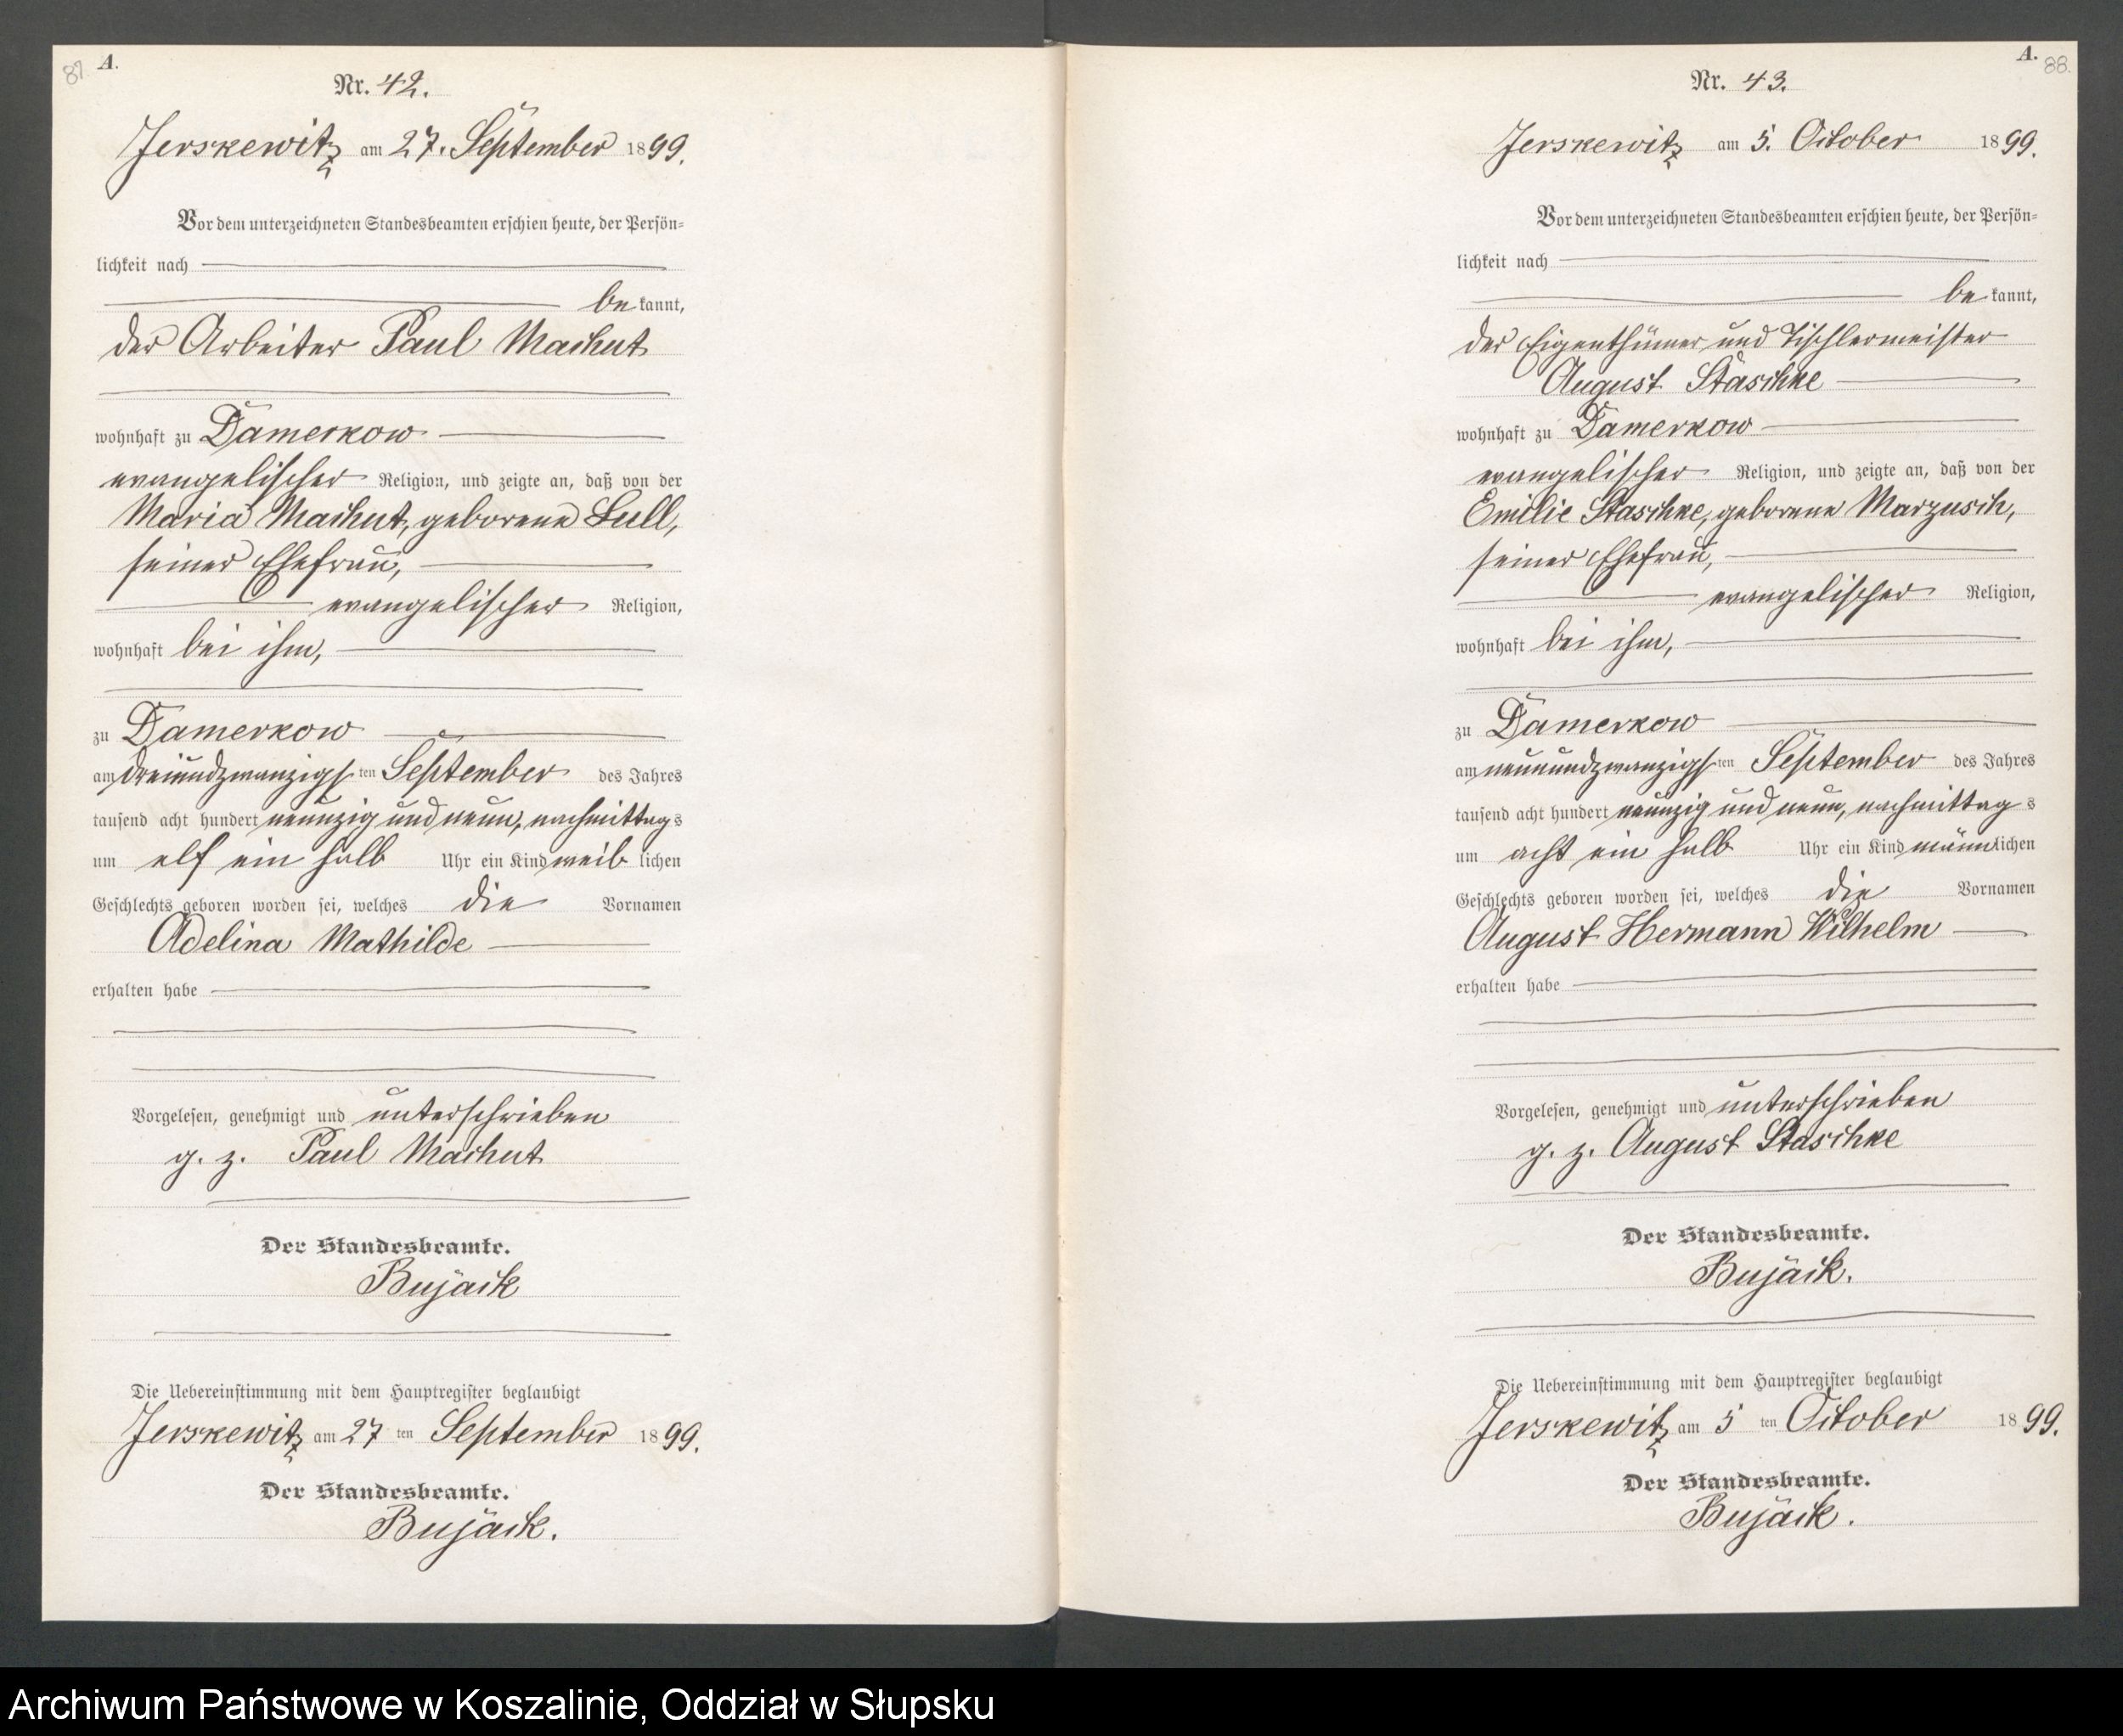 87.
A.
Nr. 42.
Jerskewitz am 27. September 1899.
Vor dem unterzeichneten Standesbeamten erschien heute, der Persön-
lichkeit nach
be kannt,
der Arbeiter Paul Machut
wohnhaft zu Damerkow
evangelischer Religion, und zeigte an, daß von der
Maria Machut, geborene Lull,
seiner Ehefrau,
evangelischer Religion,
wohnhaft bei ihm,
zu Damerkow
am dreiundzwanzigsten September des Jahres
tausend acht hundert neunzig und neun, nachmittags
um elf ein halb Uhr ein Kind weiblichen
Geschlechts geboren worden sei, welches die Vornamen
Adelina Mathilde
erhalten habe
Vorgelesen, genehmigt und unterschrieben
g. z. Paul Machut
Der Standesbeamte.
Bujack
Die Uebereinstimmung mit dem Hauptregister beglaubigt
Jerskewitz am 27 ten September 1899.
Der Standesbeamte.
Bujack.
A.
88.
Nr. 43.
Jerskewitz am 5. October 1899.
Vor dem unterzeichneten Standesbeamten erschien heute, der Persön-
lichkeit nach
be kannt,
der Eigenthümer und Tischlermeister
August Staschke
wohnhaft zu Damerkow
evangelischer Religion, und zeigte an, daß von der
Emilie Staschke, geborene Marzusch,
seiner Ehefrau,
evangelischer Religion,
wohnhaft bei ihm,
zu Damerkow
am neunundzwanzigsten September des Jahres
tausend acht hundert neunzig und neun, nachmittags
um acht ein halb Uhr ein Kind männlichen
Geschlechts geboren worden sei, welches die Vornamen
August Hermann Wilhelm
erhalten habe
Vorgelesen, genehmigt und unterschrieben
g. z. August Staschke
Der Standesbeamte.
Bujack.
Die Uebereinstimmung mit dem Hauptregister beglaubigt
Jerskewitz am 5 ten October 1899.
Der Standesbeamte.
Bujack.
Archiwum Państwowe w Koszalinie, Oddział w Słupsku